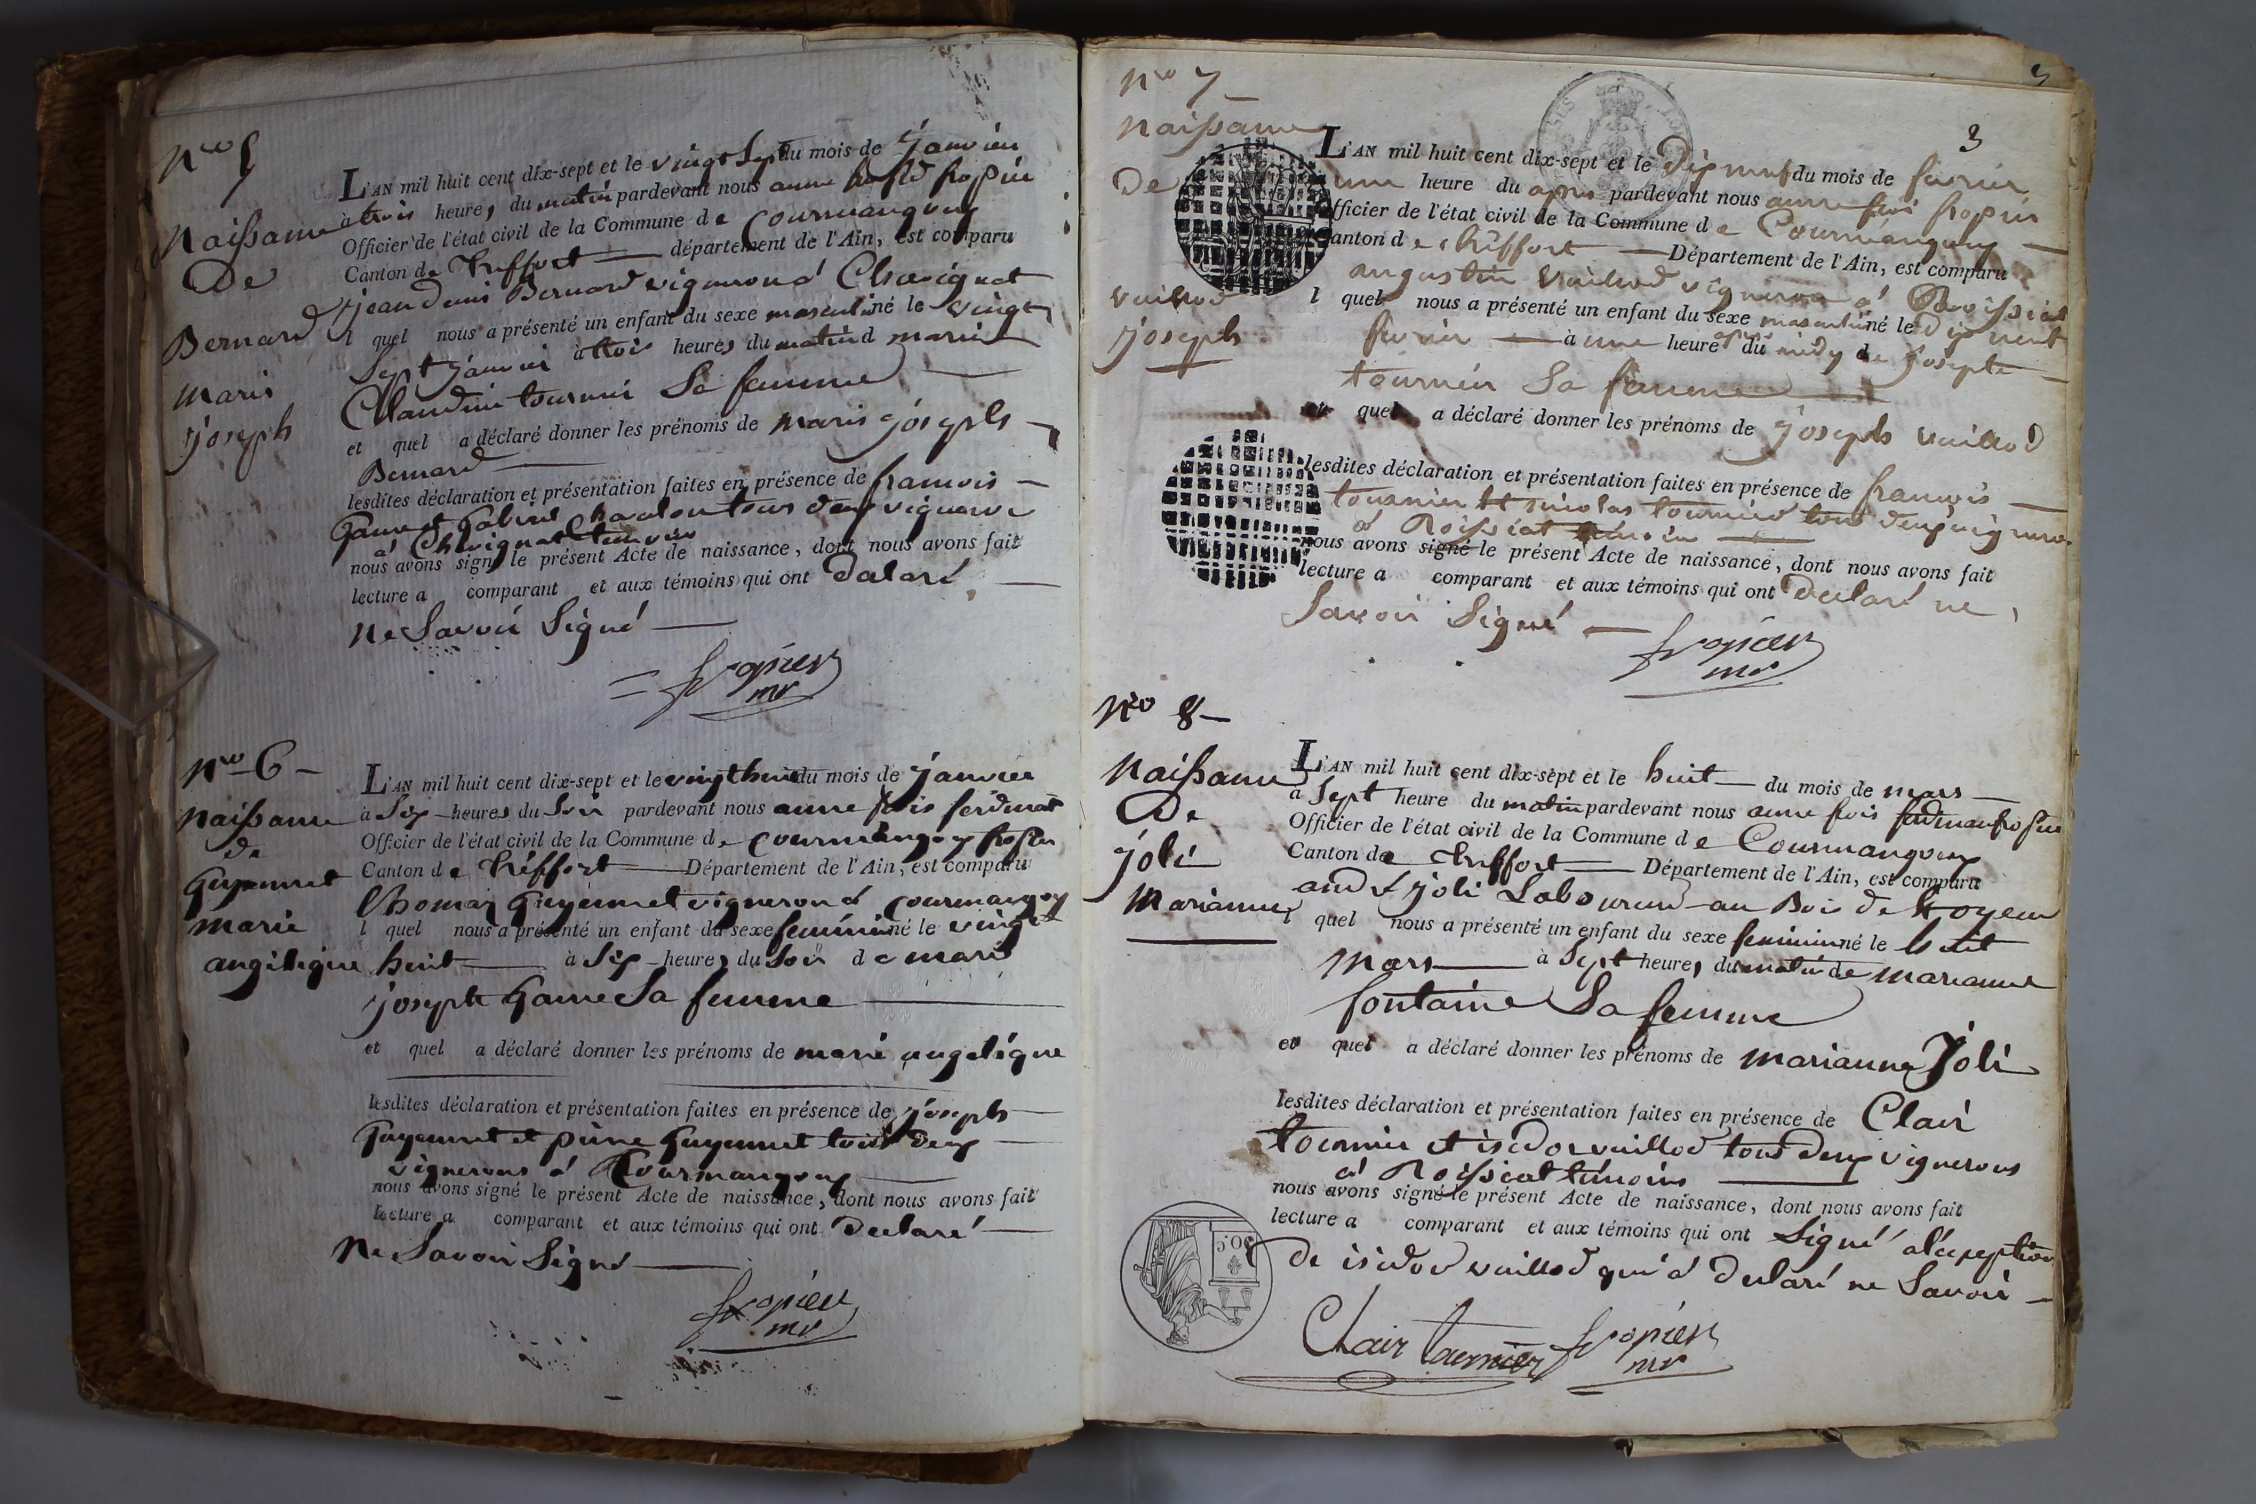 No 5
Naissance
De
Bernard
Marie
joseph
L'AN mil huit cent dix-sept et le vingt Sept du mois de janvier
à trois heures du matin pardevant nous
Officier de l'état civil de la Commune de Courmangoux
Canton de Treffort département de l'Ain, est comparu
jean Denis Bernard vigneron à Chevignat
l quel nous a présenté un enfant du sexe masculin né le vingt
Sept janvier à trois heures du matin d marie
Claudine tournier Sa femme
et quel a déclaré donner les prénoms de marie joseph
Bernard
lesdites déclaration et présentation faites en présence de francois
tous deux vigneron
à Chevignat temoins
nous avons signé le présent Acte de naissance, dont nous avons fait
lecture a comparant et aux témoins qui ont Declaré
Ne Savoir Signé
fropier
mr
No 6
Naissance
de
Guyennet
marie
angelique
L'AN mil huit cent dix-sept et le vingt huit du mois de janvier
à Six heures du Soir pardevant nous anne fois ferdinat
Officier de l'état civil de la Commune de Courmangoux fropier
Canton de Treffort Département de l'Ain, est comparu
Thomas Guyennet vigneron à Courmangoux
l quel nous a présenté un enfant du sexe feminin né le vingt
huit à Six heures du Soir de marie
joseph Game Sa femme
et quel a déclaré donner les prénoms de marie angelique
lesdites déclaration et présentation faites en présence de joseph
Guyennet et pierre Guyennet tous deux
vignerons à Courmangoux
nous avons signé le présent Acte de naissance, dont nous avons fait
lecture a comparant et aux témoins qui ont Declaré
Ne Savoir Signé
fropier
mr
3
No 7
Naissance
De
vuillod
joseph
L'AN mil huit cent dix-sept et le Dix neuf du mois de fevrier
une heure du apres pardevant nous anne fois fropier
Officier de l'état civil de la Commune de Courmangoux
Canton de treffort Département de l'Ain, est comparu
augustin vuillod vigneron à Roissiat
l quel nous a présenté un enfant du sexe masculin né le dix neuf
fevrier à une heure apres du midy de josephte
tournier Sa femme
et quel a déclaré donner les prénoms de joseph vuillod
lesdites déclaration et présentation faites en présence de francois
tournier et nicolas tournier tous deux vigneron
à Roissiat temoins
nous avons signé le présent Acte de naissance, dont nous avons fait
lecture a comparant et aux témoins qui ont Declaré ne
Savoir Signé
fropier
mr
No 8
Naissance
De
joli
Marianne
L'AN mil huit cent dix-sept et le huit du mois de mars
à Sept heure du matin pardevant nous anne fois ferdinan fropier
Officier de l'état civil de la Commune de Courmangoux
Canton de Treffort Département de l'Ain, est comparu
joli Laboureur au Bois de
l quel nous a présenté un enfant du sexe feminin né le huit
Mars à Sept heures du matin de marianne
fontaine Sa femme
et quel a déclaré donner les prénoms de marianne Joli
lesdites déclaration et présentation faites en présence de Clair
tournier et isidor vuillod tous deux vignerons
à Roissiat témoins
nous avons signé le présent Acte de naissance, dont nous avons fait
lecture a comparant et aux témoins qui ont Signé a léxception
de isidor vuillod qui à declaré ne Savoir
Clair tournier fropier
mr